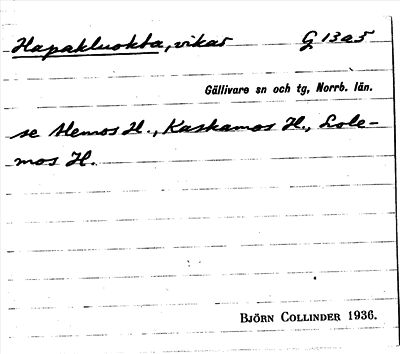 Hapakluokta, vikar G 13 a 5
Gällivare sn och tg, Norrb. län.
se Alemos H., Kaskamos H., Lole-
mos H.
BJÖRN COLLINDER 1936.